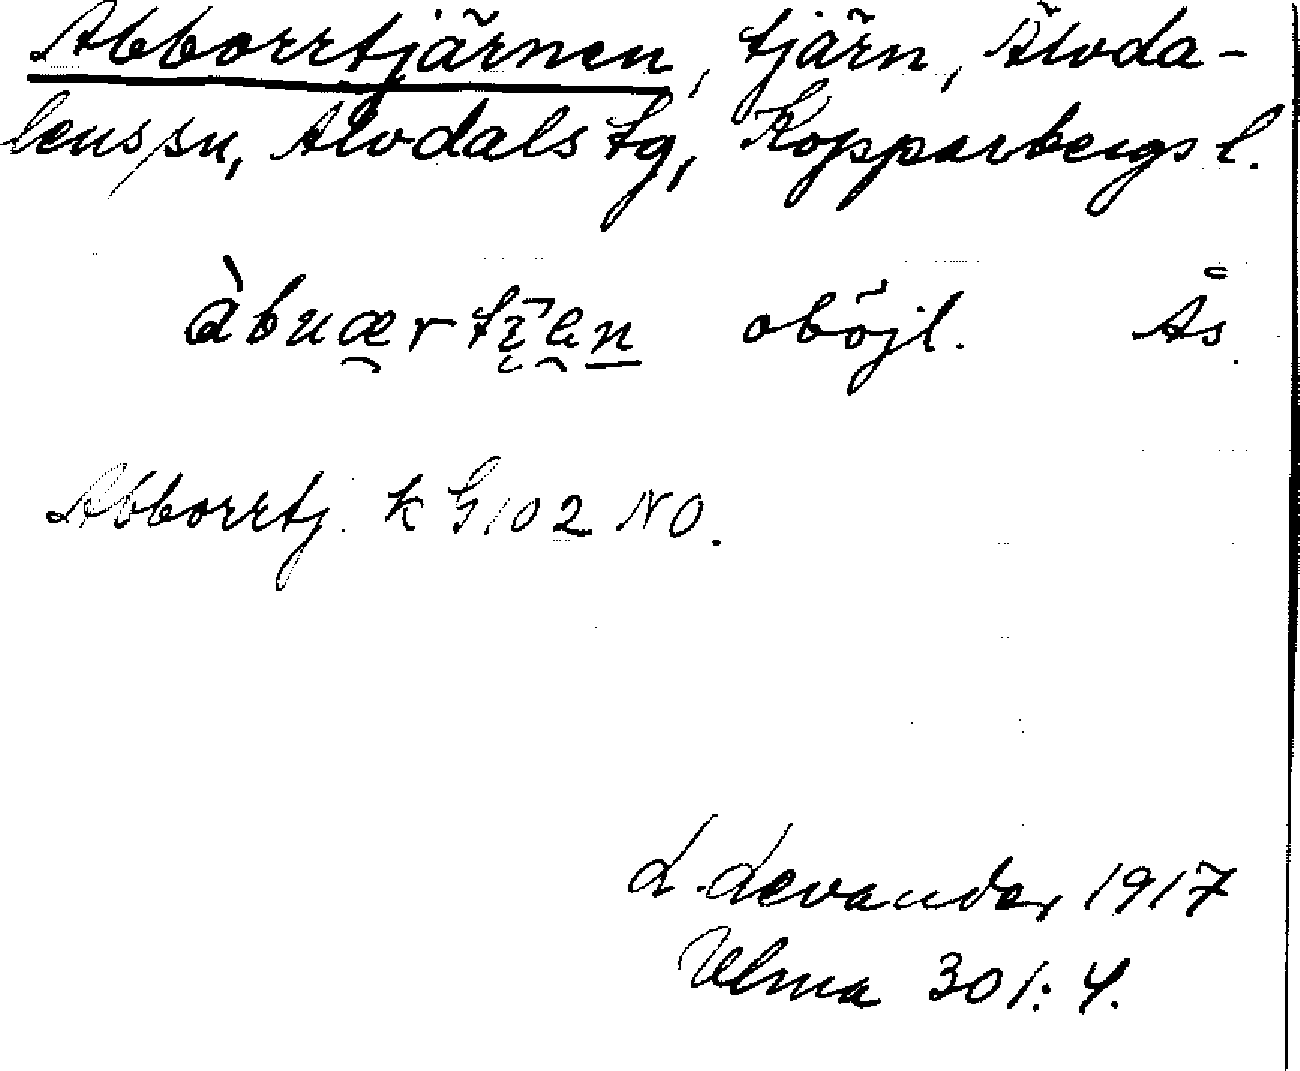 Abborrtjärnen, tjärn, Älvda-
lens sn, Älvdals tg, Kopparbergs l.
oböjl. Ås.
Abborrtj. k G 102 NO.
L. Levander 1917
Ulma 301:4.